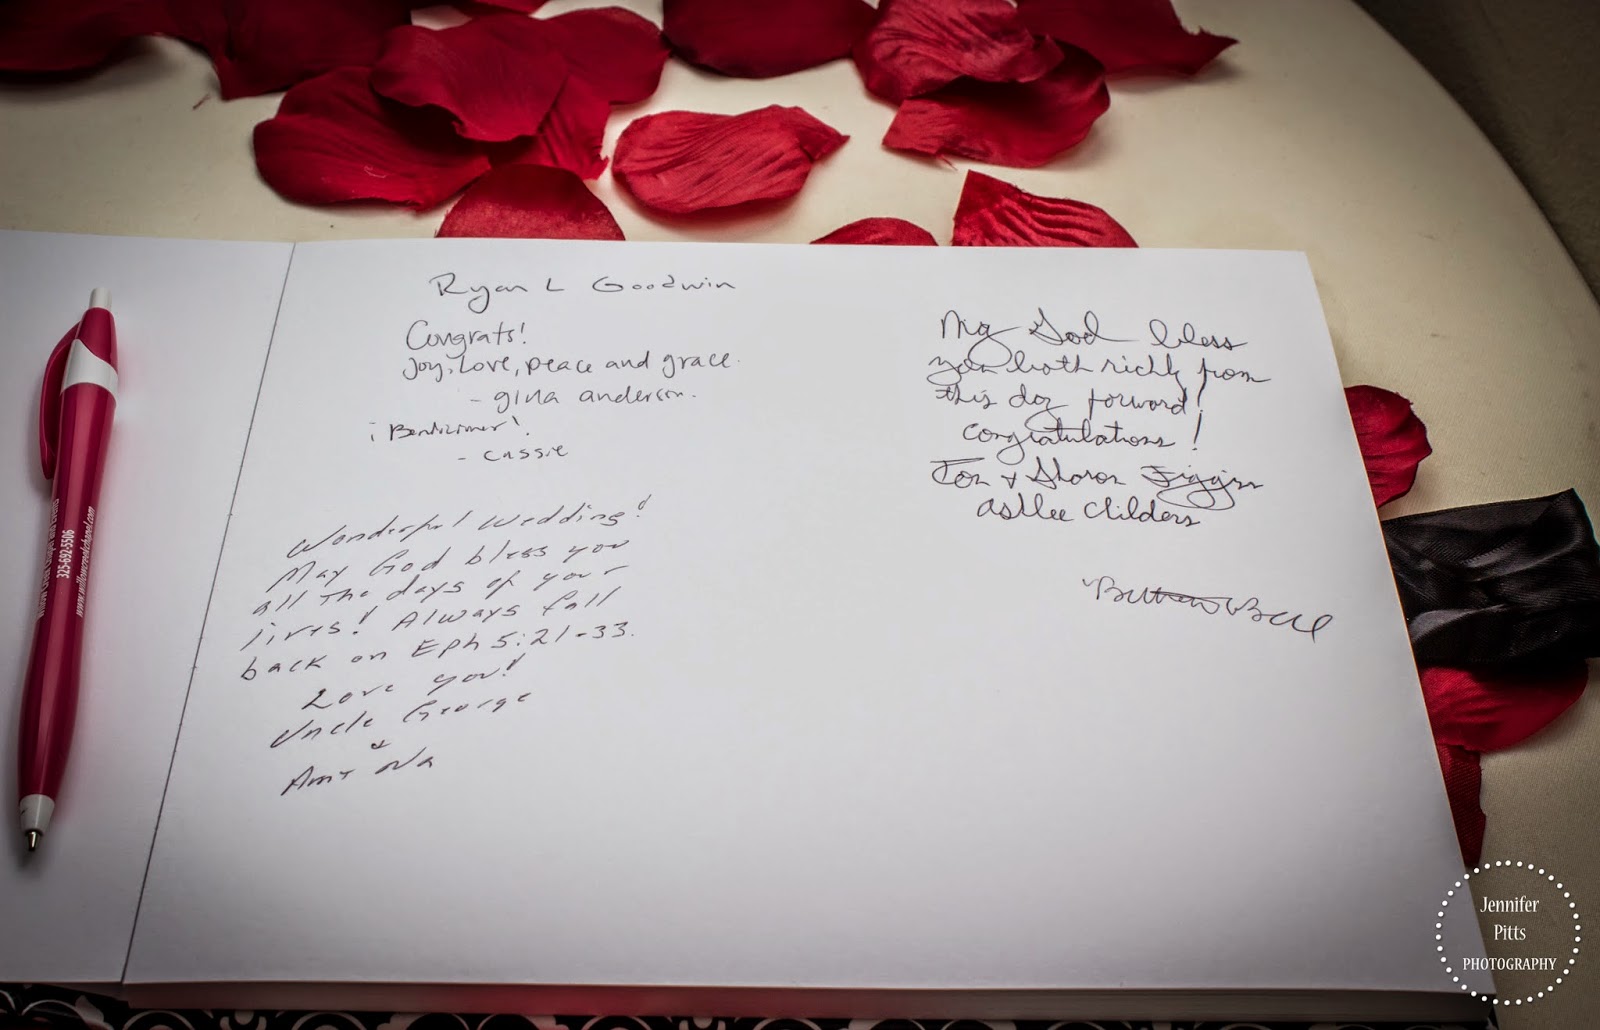 Ryan L Goodwin
Congrats!
Joy, Love, peace and grace.
- gina anderson.
- Cassie
Wonderful Wedding!
May God bless you
all the days of your
lives! Always fall
back on Eph 5:21-33.
Love you!
Uncle George
&
May God bless
you both richly from
this day forward!
Congratulations!
& Sharon
Ashlee Childers
Willow Creek Chapel and Events
325-692-5506
www.willowcreekchapel.com
Jennifer
Pitts
PHOTOGRAPHY